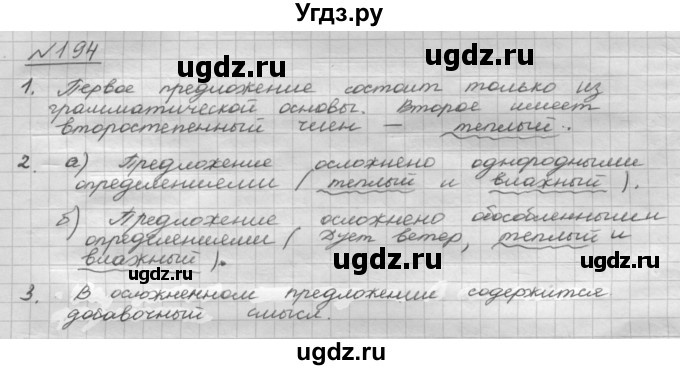 Угдз.ру
№194
1. Первое предложение состоит только из
грамматической основы. Второе имеет
второстепенный член – теплый.
2. а) Предложение осложнено однородными
определениями (теплый и влажный).
б) Предложение осложнено обособленными
определениями (Дует ветер, теплый и
влажный).
3. В осложненном предложении содержится
добавочный смысл.
ugdz.ru
ugdz.ru
ugdz.ru
ugdz.ru
ugdz.ru
ugdz.ru
ugdz.ru
ugdz.ru
ugdz.ru
ugdz.ru
ugdz.ru
ugdz.ru